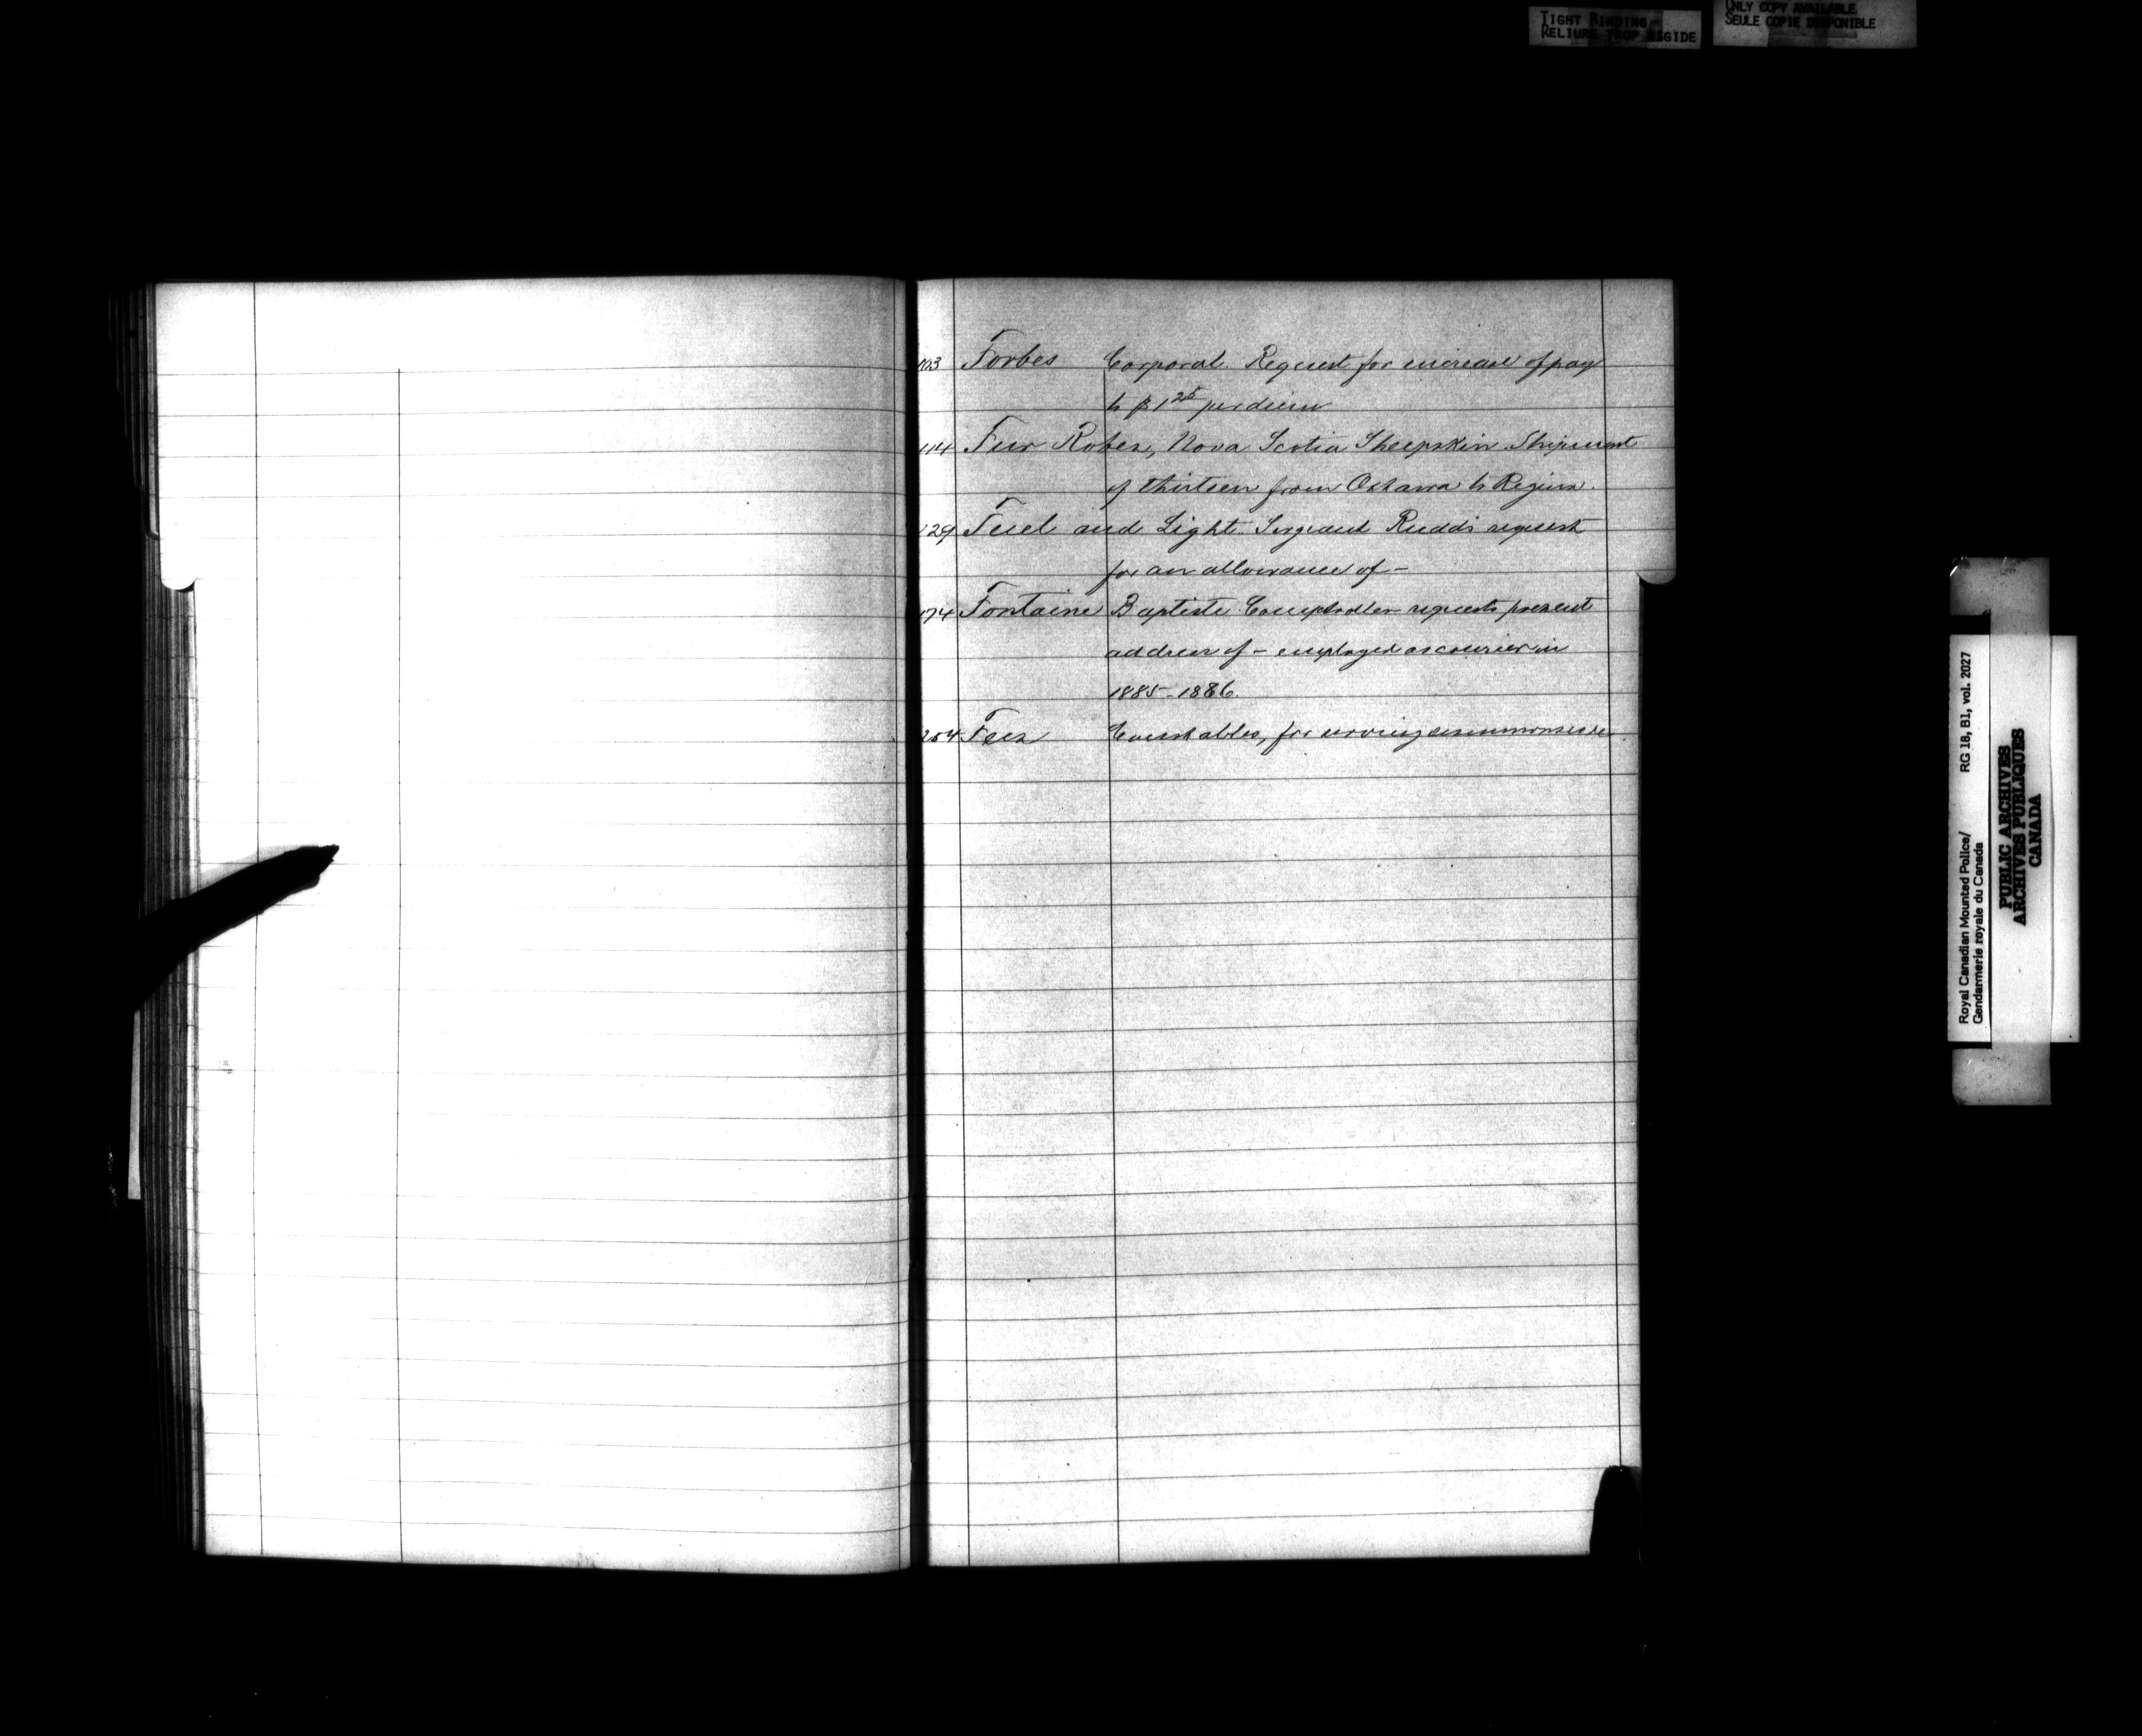 TIGHT BINDING
RELIURE TROP RIGIDE
ONLY COPY AVAILABLE
SEULE COPIE DISPONIBLE
103 Forbes Corporal. Request for increase of pay
to $1 25 per diem
114 Fur Robes, Nova Scotia Sheepskin. Shipment
of thirteen from Ottawa to Regina.
129 Fuel and Light. Sergeant Rudd's request
for an allowance of –
174 Fontaine Baptiste Comptroller requests present
address of – employed as courier in
1885-1886.
254 Fees Constables, for serving summonses re
Royal Canadian Mounted Police/ RG 18, B1, vol. 2027
Gendarmerie royale du Canada
PUBLIC ARCHIVES
ARCHIVES PUBLIQUES
CANADA